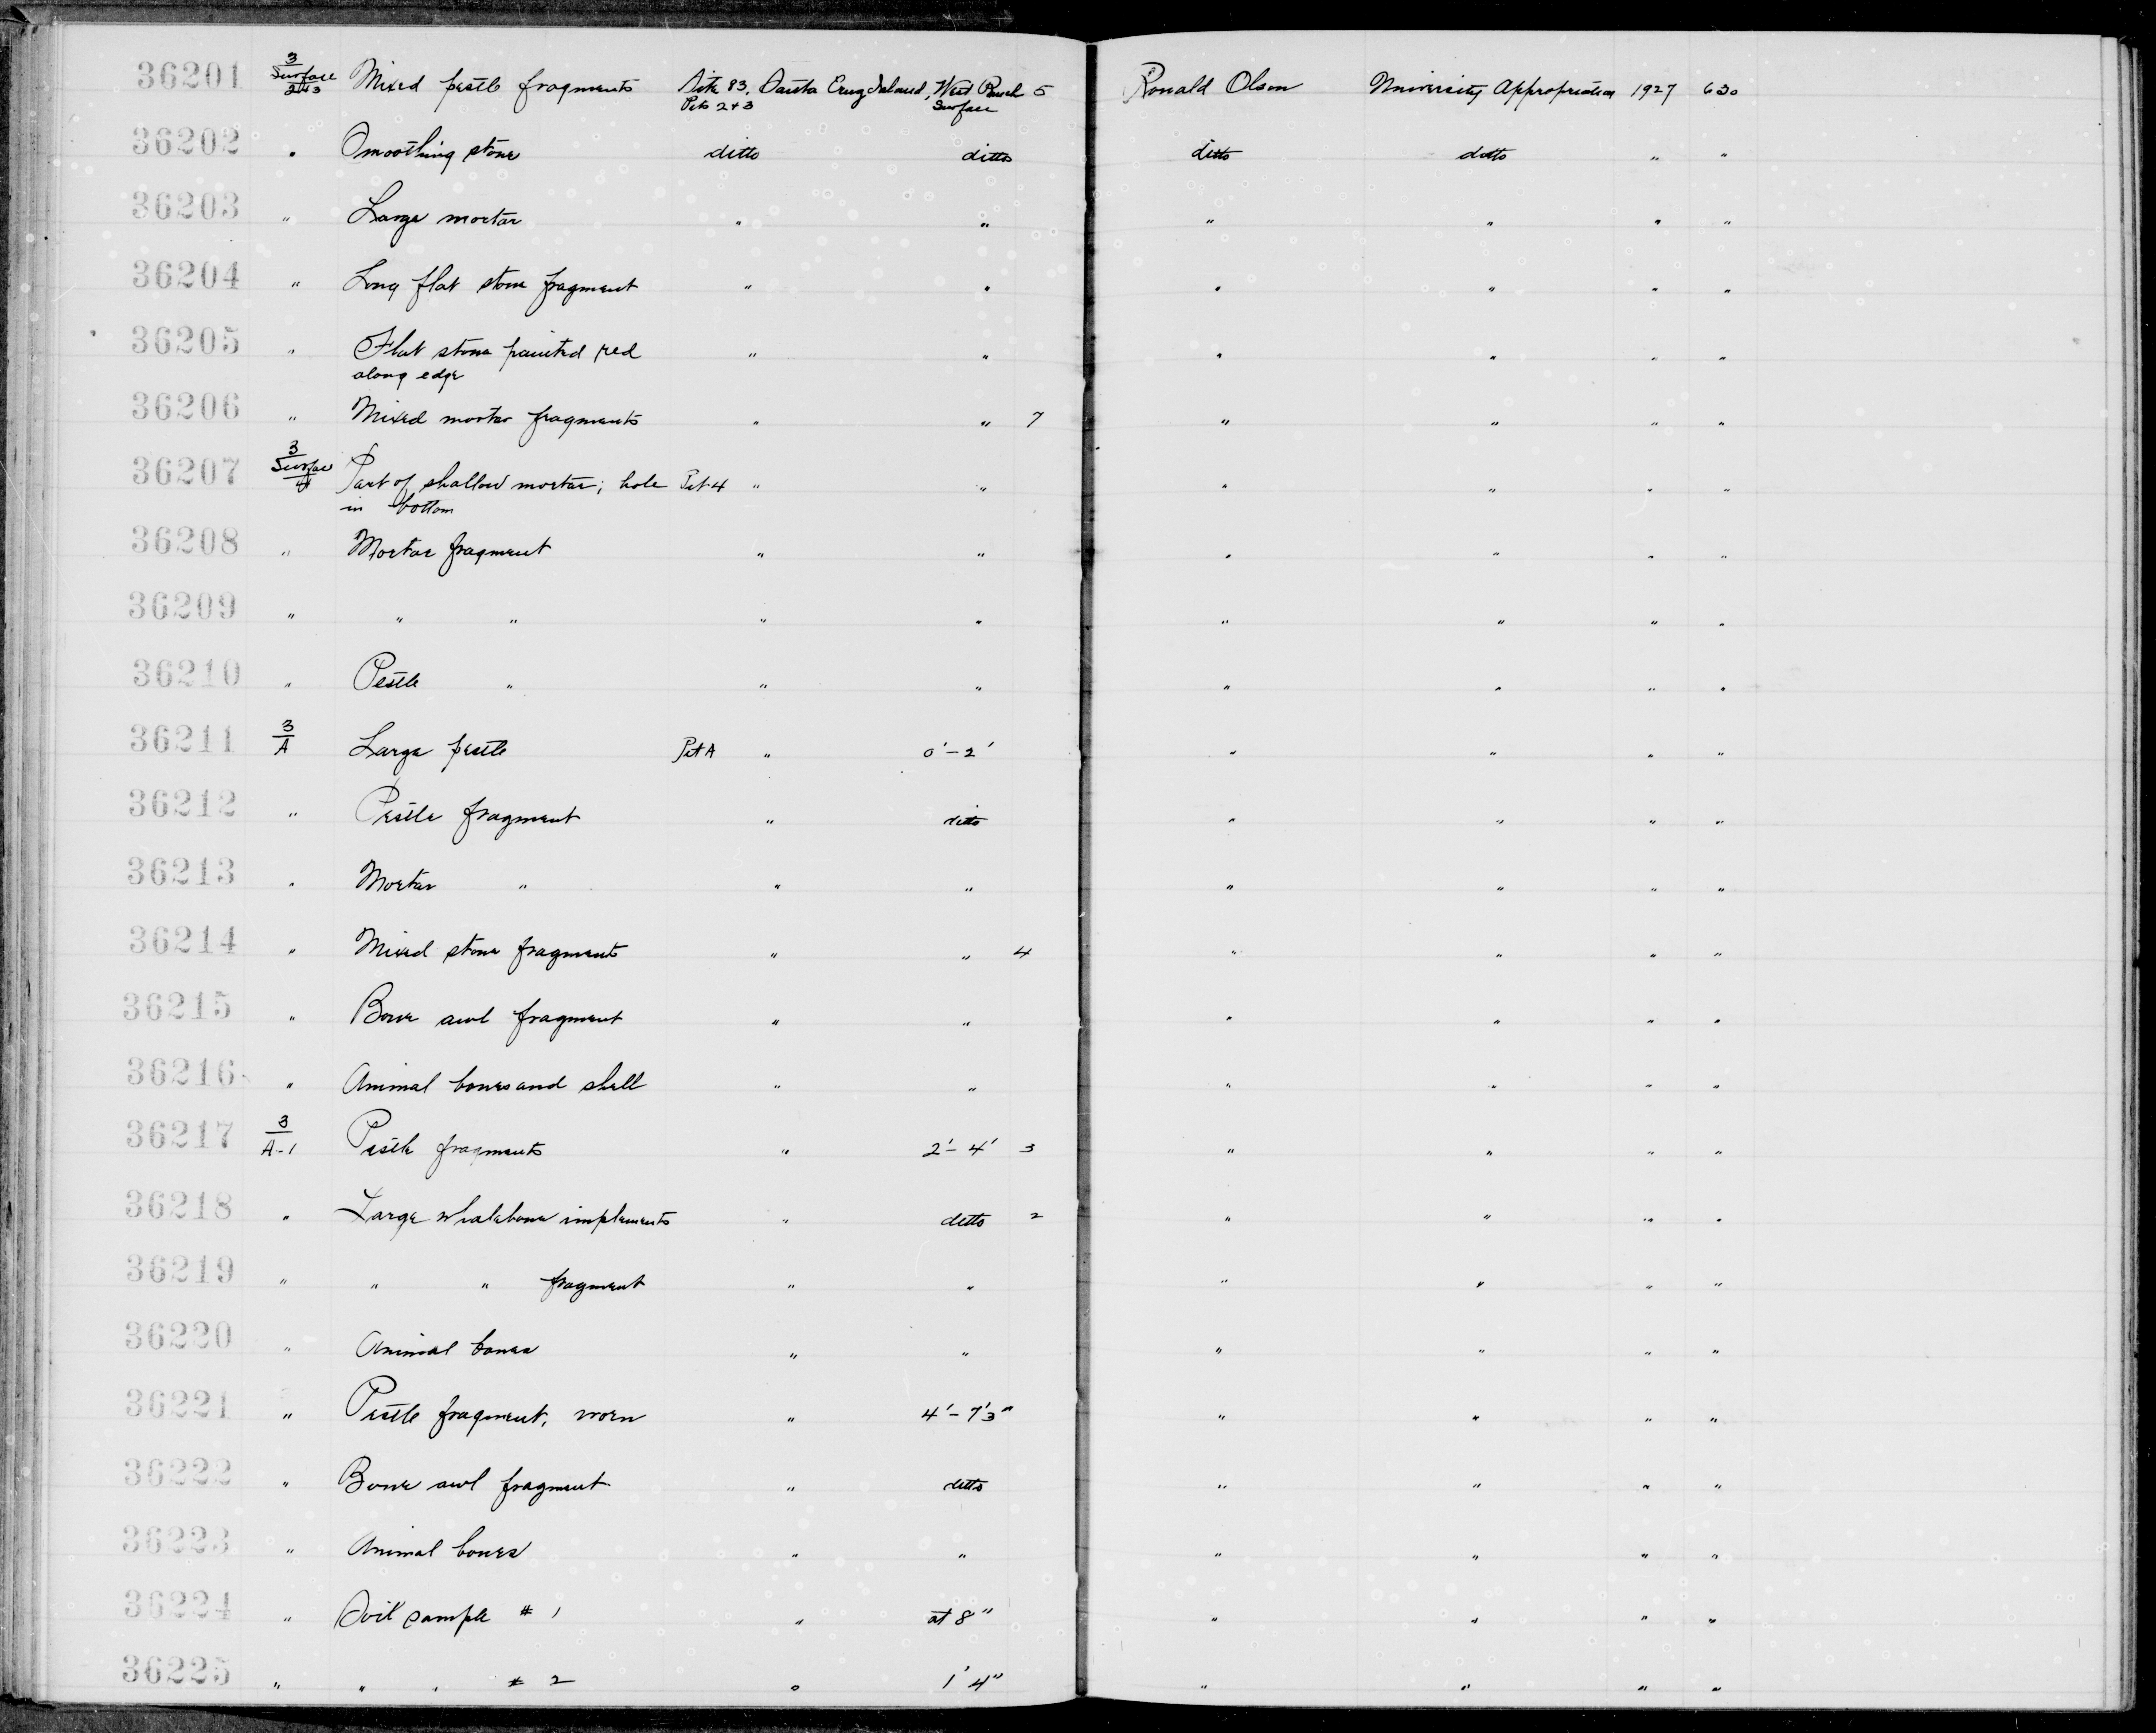 36201 3 Surface 2+3 Mixed pestle fragments Site 83, Santa Cruz Island, West Ranch 5 Ronald Olson University Appropriation 1927 630
Pits 2+3 Surface
36202 " Smoothing stone ditto ditto ditto ditto " "
36203 " Large mortar " " " " " "
36204 " Long flat stone fragment " " " " " "
36205 " Flat stone painted red " " " " " "
along edge
36206 " Mixed mortar fragments " " 7 " " " "
36207 3 Surface 4 Part of shallow mortar; hole Pit 4 " " " " " "
in bottom
36208 " Mortar fragment " " " " " "
36209 " " " " " " " " "
36210 " Pestle " " " " " " "
36211 3 A Large pestle Pit A " 0'-2' " " " "
36212 " Pestle fragment " ditto " " " "
36213 " Mortar " " " " " " "
36214 " Mixed stone fragments " " 4 " " " "
36215 " Bone awl fragment " " " " " "
36216 " Animal bones and shell " " " " " "
36217 3 A-1 Pestle fragments " 2'-4' 3 " " " "
36218 " Large whalebone implements " ditto 2 " " " "
36219 " " " fragment " " " " " "
36220 " Animal bones " " " " " "
36221 " Pestle fragment, worn " 4'-7'3" " " " "
36222 " Bone awl fragment " ditto " " " "
36223 " Animal bones " " " " " "
36224 " Soil sample # 1 " at 8" " " " "
36225 " " " # 2 " 1'4" " " " "